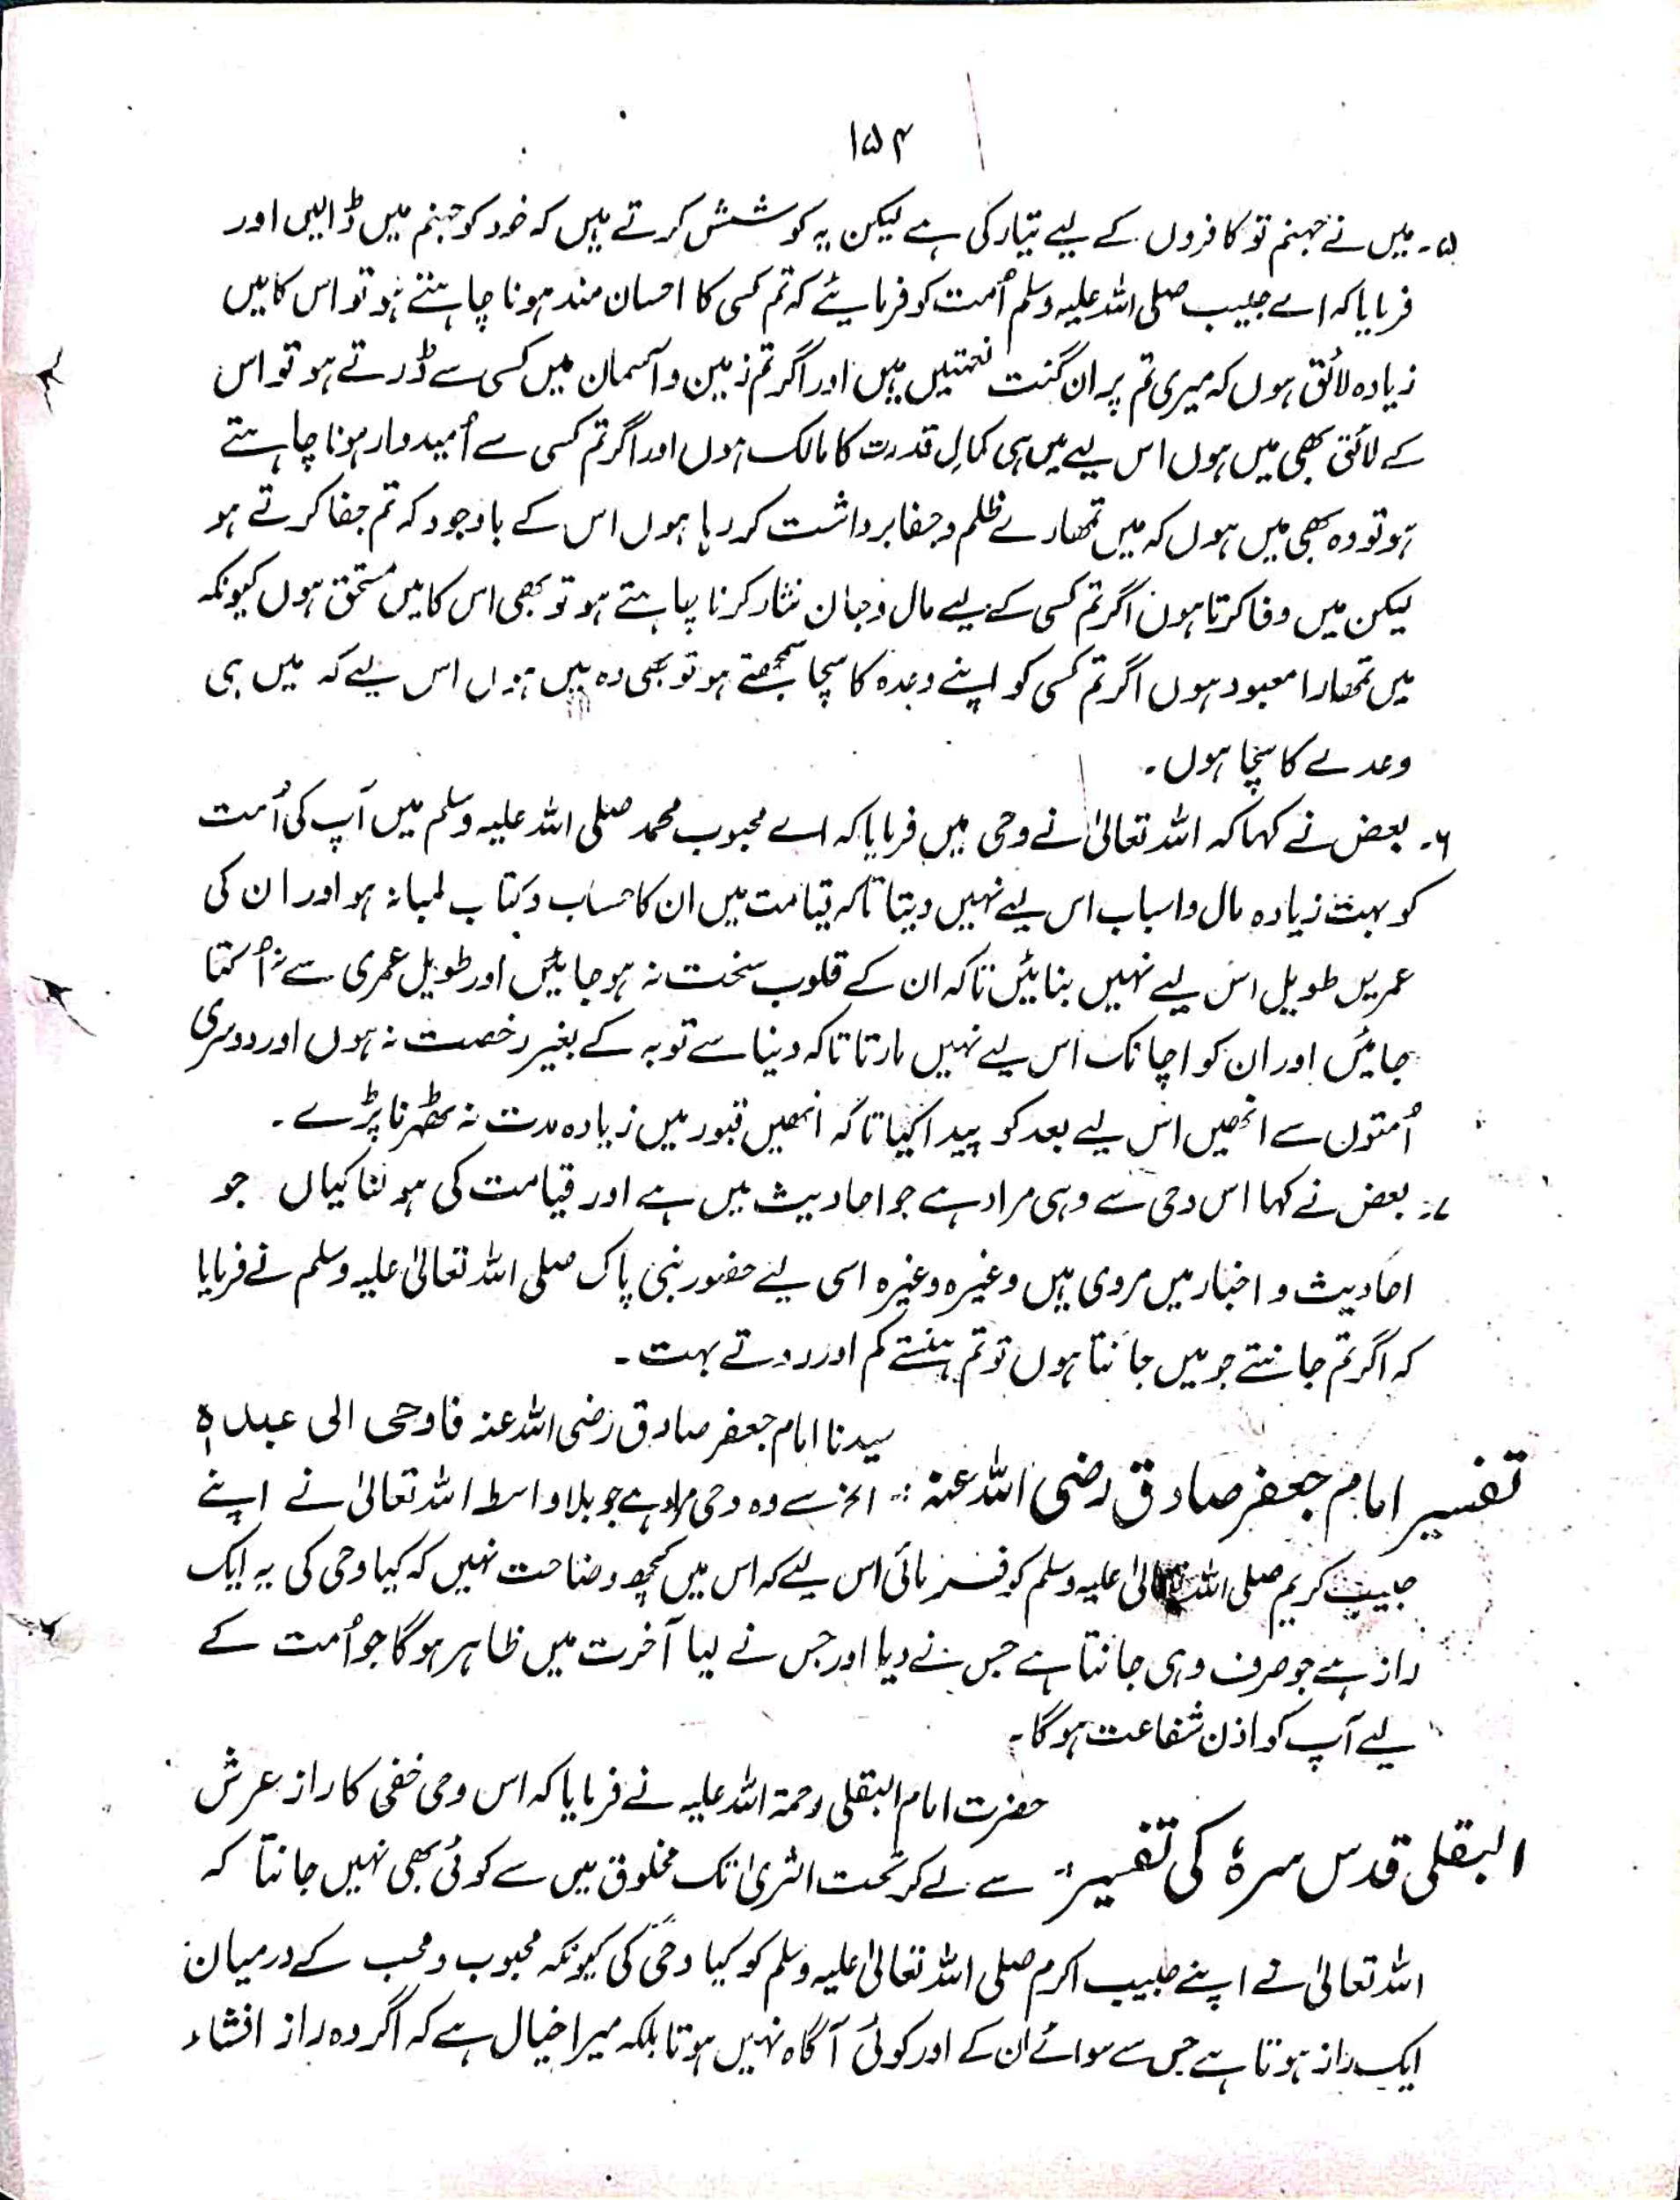 ۱۵۴
۵۔ میں نے جہنم تو کافروں کے لیے تیار کی ہے لیکن یہ کوشش کرتے ہیں کہ خود کو جہنم میں ڈالیں اور
فرمایا کہ اے حبیب صلی اللہ علیہ وسلم اُمت کو فرمایئے کہ تم کسی کا احسان مند ہونا چاہتے ہو تو اس کا میں
زیادہ لائق ہوں کہ میری تم پر ان گنت نعمتیں ہیں اور اگر تم زمین و آسمان میں کسی سے ڈرتے ہو تو اس
کے لائق بھی میں ہوں اس لیے میں ہی کمالِ قدرت کا مالک ہوں اور اگر تم کسی سے اُمیدوار ہونا چاہتے
ہو تو وہ بھی میں ہوں کہ میں تمھارے ظلم و جفا برداشت کر رہا ہوں اس کے باوجود کہ تم جفا کرتے ہو
لیکن میں وفا کرتا ہوں اگر تم کسی کے لیے مال و جان نثار کرنا چاہتے ہو تو بھی اس کا میں مستحق ہوں کیونکہ
میں تمھارا معبود ہوں اگر تم کسی کو اپنے وعدہ کا سچا سمجھتے ہو تو بھی وہ میں ہوں اس لیے کہ میں ہی
وعدے کا سچا ہوں۔
۶۔ بعض نے کہا کہ اللہ تعالیٰ نے وحی میں فرمایا کہ اے محبوب محمد صلی اللہ علیہ وسلم میں آپ کی اُمت
کو بہت زیادہ مال و اسباب اس لیے نہیں دیتا تاکہ قیامت میں ان کا حساب و کتاب لمبا نہ ہو اور ان کی
عمریں طویل اس لیے نہیں بنائیں تاکہ ان کے قلوب سخت نہ ہو جائیں اور طویل عمری سے نہ اُکتا
جائیں اور ان کو اچانک اس لیے نہیں مارتا تاکہ دنیا سے توبہ کے بغیر رخصت نہ ہوں اور دوسری
اُمتوں سے انھیں اس لیے بعد کو پیدا کیا تاکہ انھیں قبور میں زیادہ مدت نہ ٹھہرنا پڑے۔
۷۔ بعض نے کہا اس وحی سے وہی مراد ہے جو احادیث میں ہے اور قیامت کی ہولناکیاں جو
احادیث و اخبار میں مروی ہیں وغیرہ وغیرہ اسی لیے حضور نبی پاک صلی اللہ تعالیٰ علیہ وسلم نے فرمایا
کہ اگر تم جانتے جو میں جانتا ہوں تو تم ہنستے کم اور روتے بہت۔
سیدنا امام جعفر صادق رضی اللہ عنہ فاوحی الی عبدہٖ
تفسیر امام جعفر صادق رضی اللہ عنہ :۔ الخ سے وہ وحی مراد ہے جو بلا واسطہ اللہ تعالیٰ نے اپنے
حبیب کریم صلی اللہ تعالیٰ علیہ وسلم کو فرمائی اس لیے کہ اس میں کچھ وضاحت نہیں کہ کیا وحی کی یہ ایک
راز ہے جو صرف وہی جانتا ہے جس نے دیا اور جس نے لیا آخرت میں ظاہر ہوگا جو اُمت کے
لیے آپ کو اذن شفاعت ہوگا۔
حضرت امام البقلی رحمۃ اللہ علیہ نے فرمایا کہ اس وحی خفی کا راز عرش
البقلی قدس سرہٗ کی تفسیر :۔ سے لے کر تحت الثریٰ تک مخلوق میں سے کوئی بھی نہیں جانتا کہ
اللہ تعالیٰ نے اپنے حبیب اکرم صلی اللہ تعالیٰ علیہ وسلم کو کیا وحی کی کیونکہ محبوب و محب کے درمیان
ایک راز ہوتا ہے جس سے سوائے ان کے اور کوئی آگاہ نہیں ہوتا بلکہ میرا خیال ہے کہ اگر وہ راز افشاء